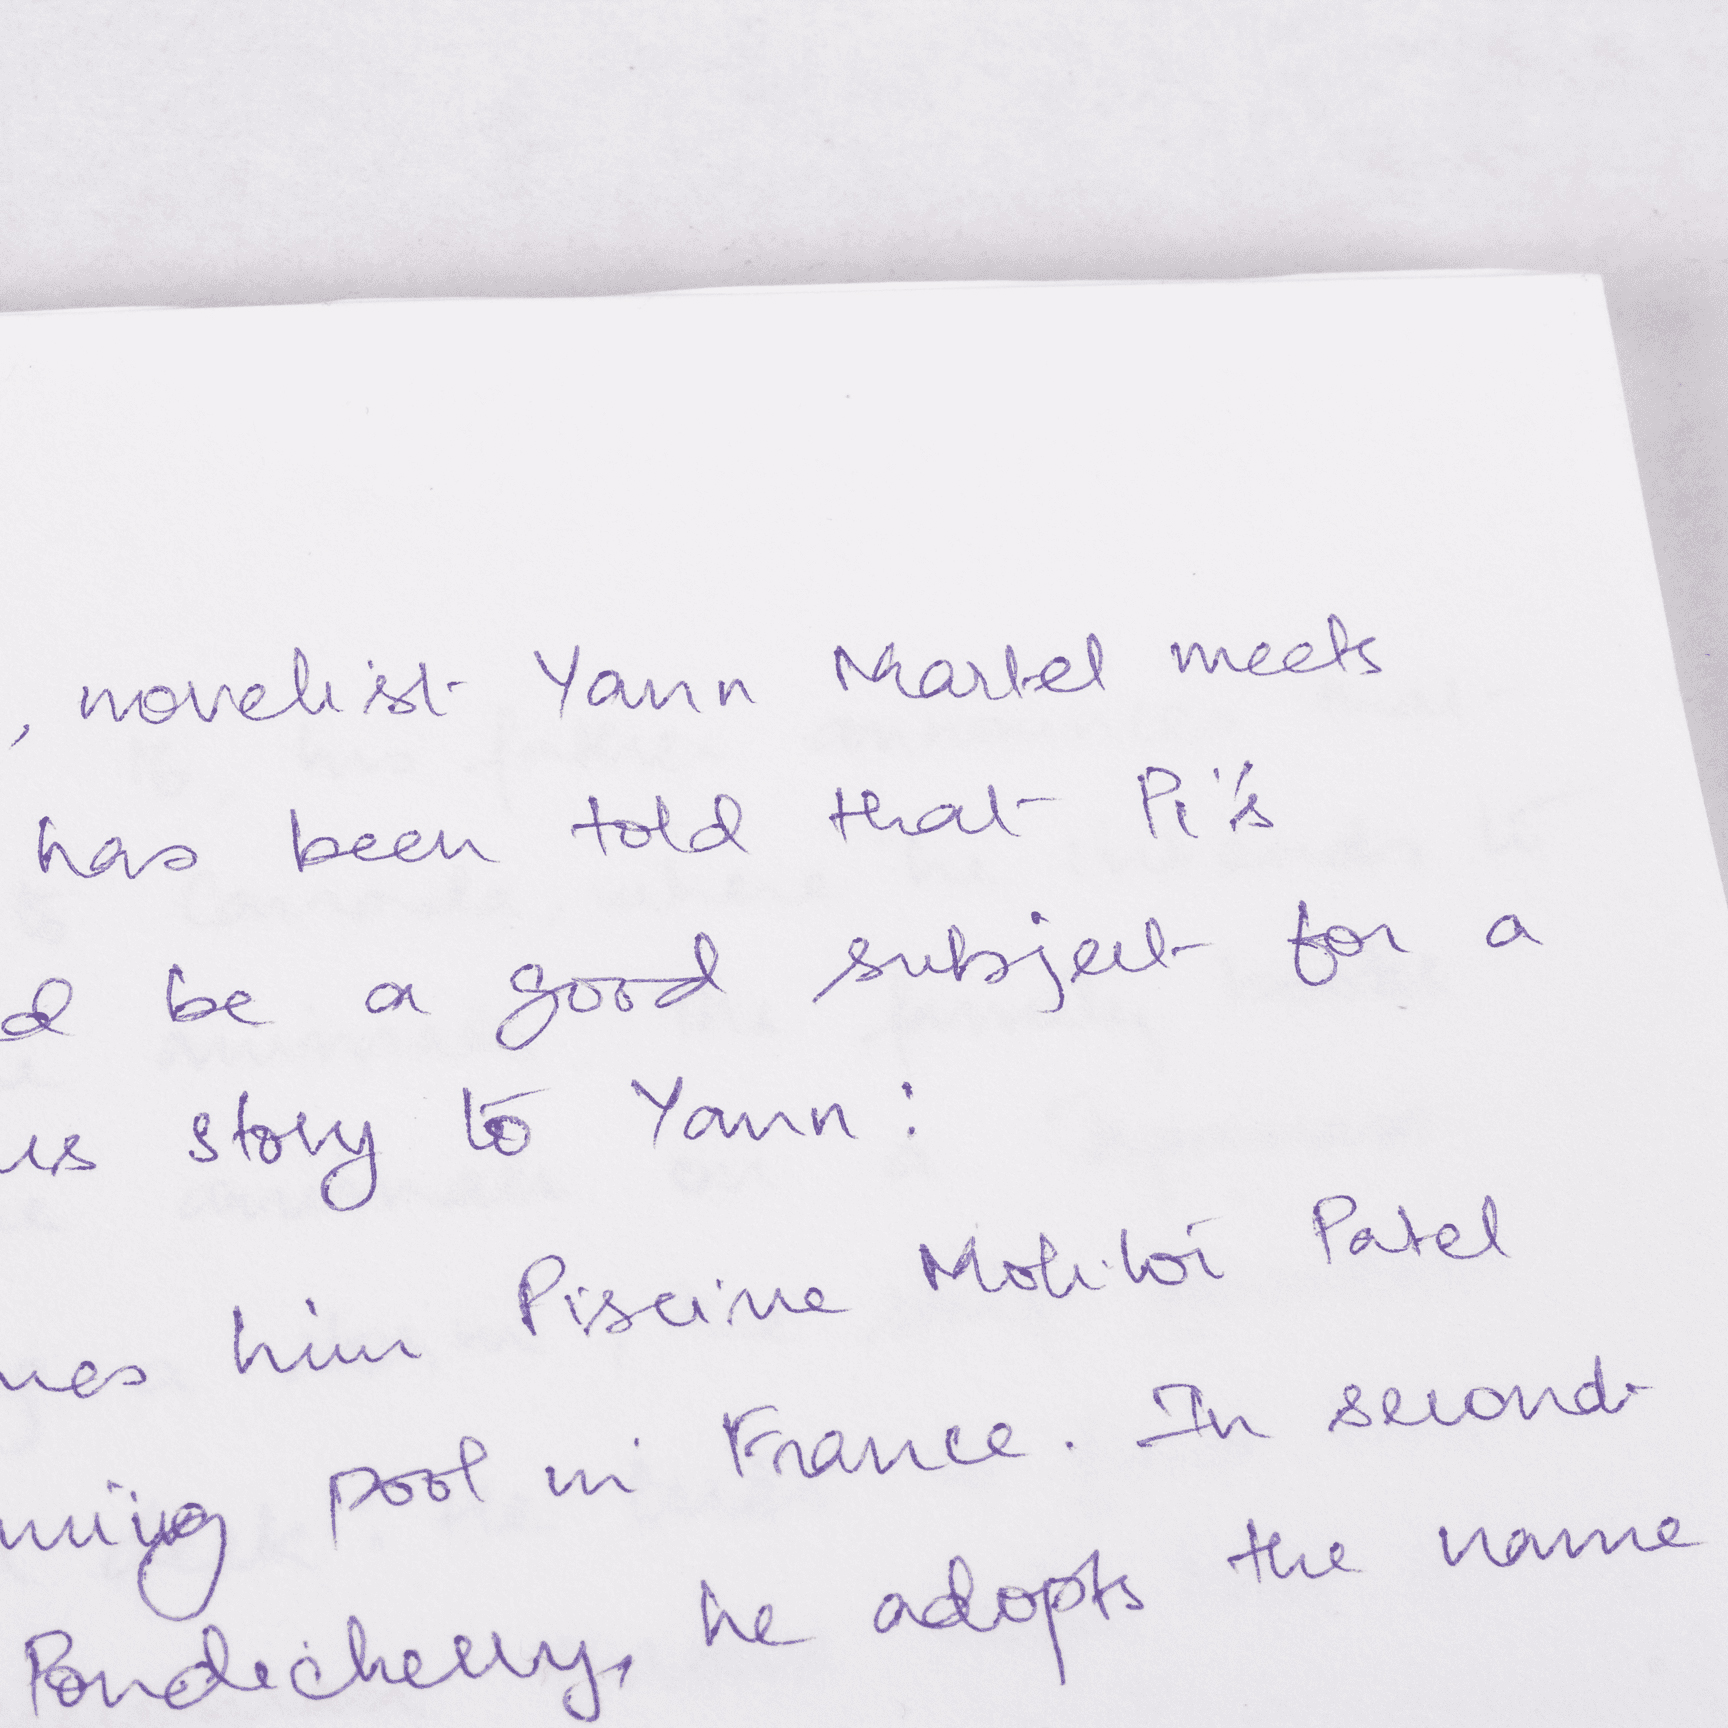 , novelist Yann Martel meets
has been told that Pi's
d be a good subject for a
story to Yann:
him Piscine Molitor Patel
pool in France. In second
Pondicherry, he adopts the name